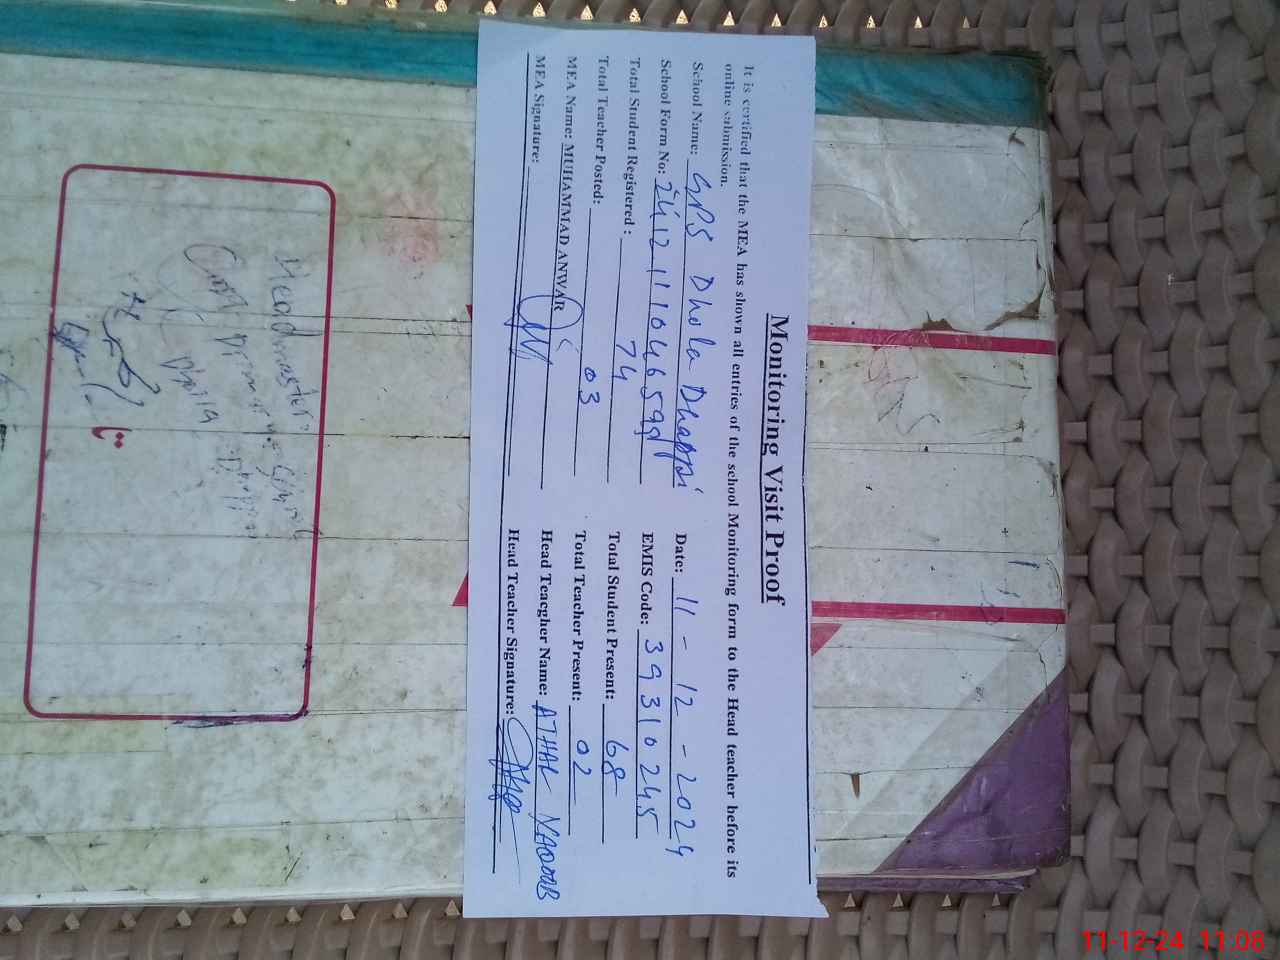 Monitoring Visit Proof
It is certified that the MEA has shown all entries of the school Monitoring form to the Head teacher before its
online submission.
School Name: GPS Dhola Dhappi Date: 11 - 12 - 2024
School Form No: EMIS Code: 39310245
Total Student Registered : 74 Total Student Present: 68
Total Teacher Posted: 03 Total Teacher Present: 02
MEA Name: MUHAMMAD ANWAR Head Teacgher Name: ATHAR YAQOOB
MEA Signature: Head Teacher Signature:
Headmaster
11-12-24 11:08